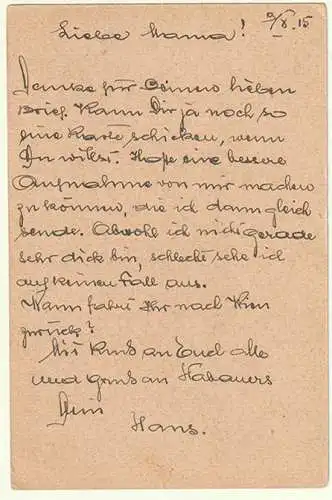 Liebe Mama! 9/X. 15
Danke für Deinen lieben
Brief. Kann Dir ja noch so
eine Karte schicken, wenn
Du willst. Hoffe eine bessere
Aufnahme von mir machen
zu können, die ich dann gleich
sende. Obwohl ich nicht gerade
sehr dick bin, schlecht sehe ich
auf keinen Fall aus.
Wann fahrt Ihr nach Wien
zurück?
Mit Kuß an Euch alle
und Gruß an Habauers
Dein
Hans.